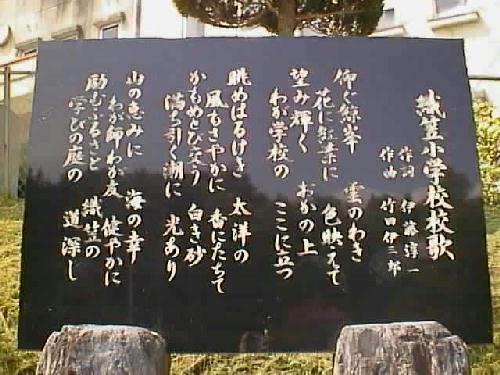 織笠小学校校歌
作詞 伊藤淳一
作曲 竹田伊三郎
仰ぐ緑峯 雲のわき
花に紅葉に 色映えて
望み輝く おかの上
わが学校の ここに立つ
眺めはるけき 太洋の
風もさやかに 香にたちて
かもめとび交う 白き砂
満ち引く潮に 光あり
山の恵みに 海の幸
わが師わが友 健やかに
励むふるさと 織笠の
学びの庭の 道深し